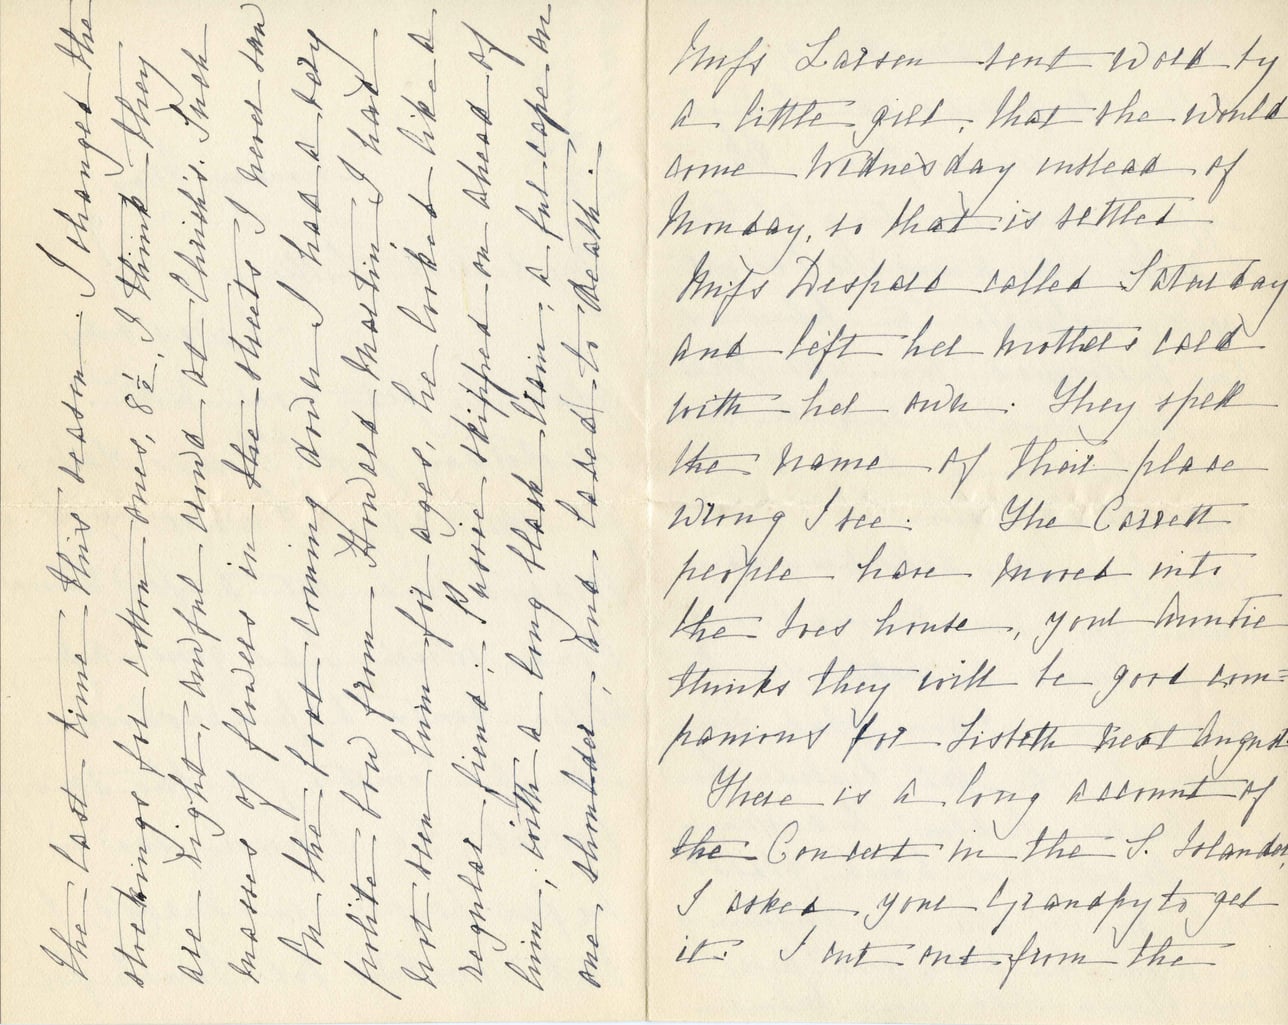 the last time this season. I changed the
stockings for cotton ones, 8½, I think they
are right, awful crowd at Christh's. Such
masses of flowers in the streets I never saw
In the boat coming down I had a very
polite bow from Howard Martin I had
not seen him for ages, he looked like a
regular fiend; Pussie skipped on ahead of
him, with a long black train, a fur cape on
one shoulder, and laced to death.
Miss Larsen sent word by
a little girl, that she would
come Wednesday instead of
Monday, so that is settled
Miss Despard called Saturday
and left her mothers card
with her own. They spell
the name of their place
wrong I see. The Barrett
people have moved into
the Ives house, your Auntie
thinks they will be good com=
panions for Lisbeth next August
There is a long account of
the Concert in the S. Islander,
I asked your Grandpy to get
it. I cut out from the